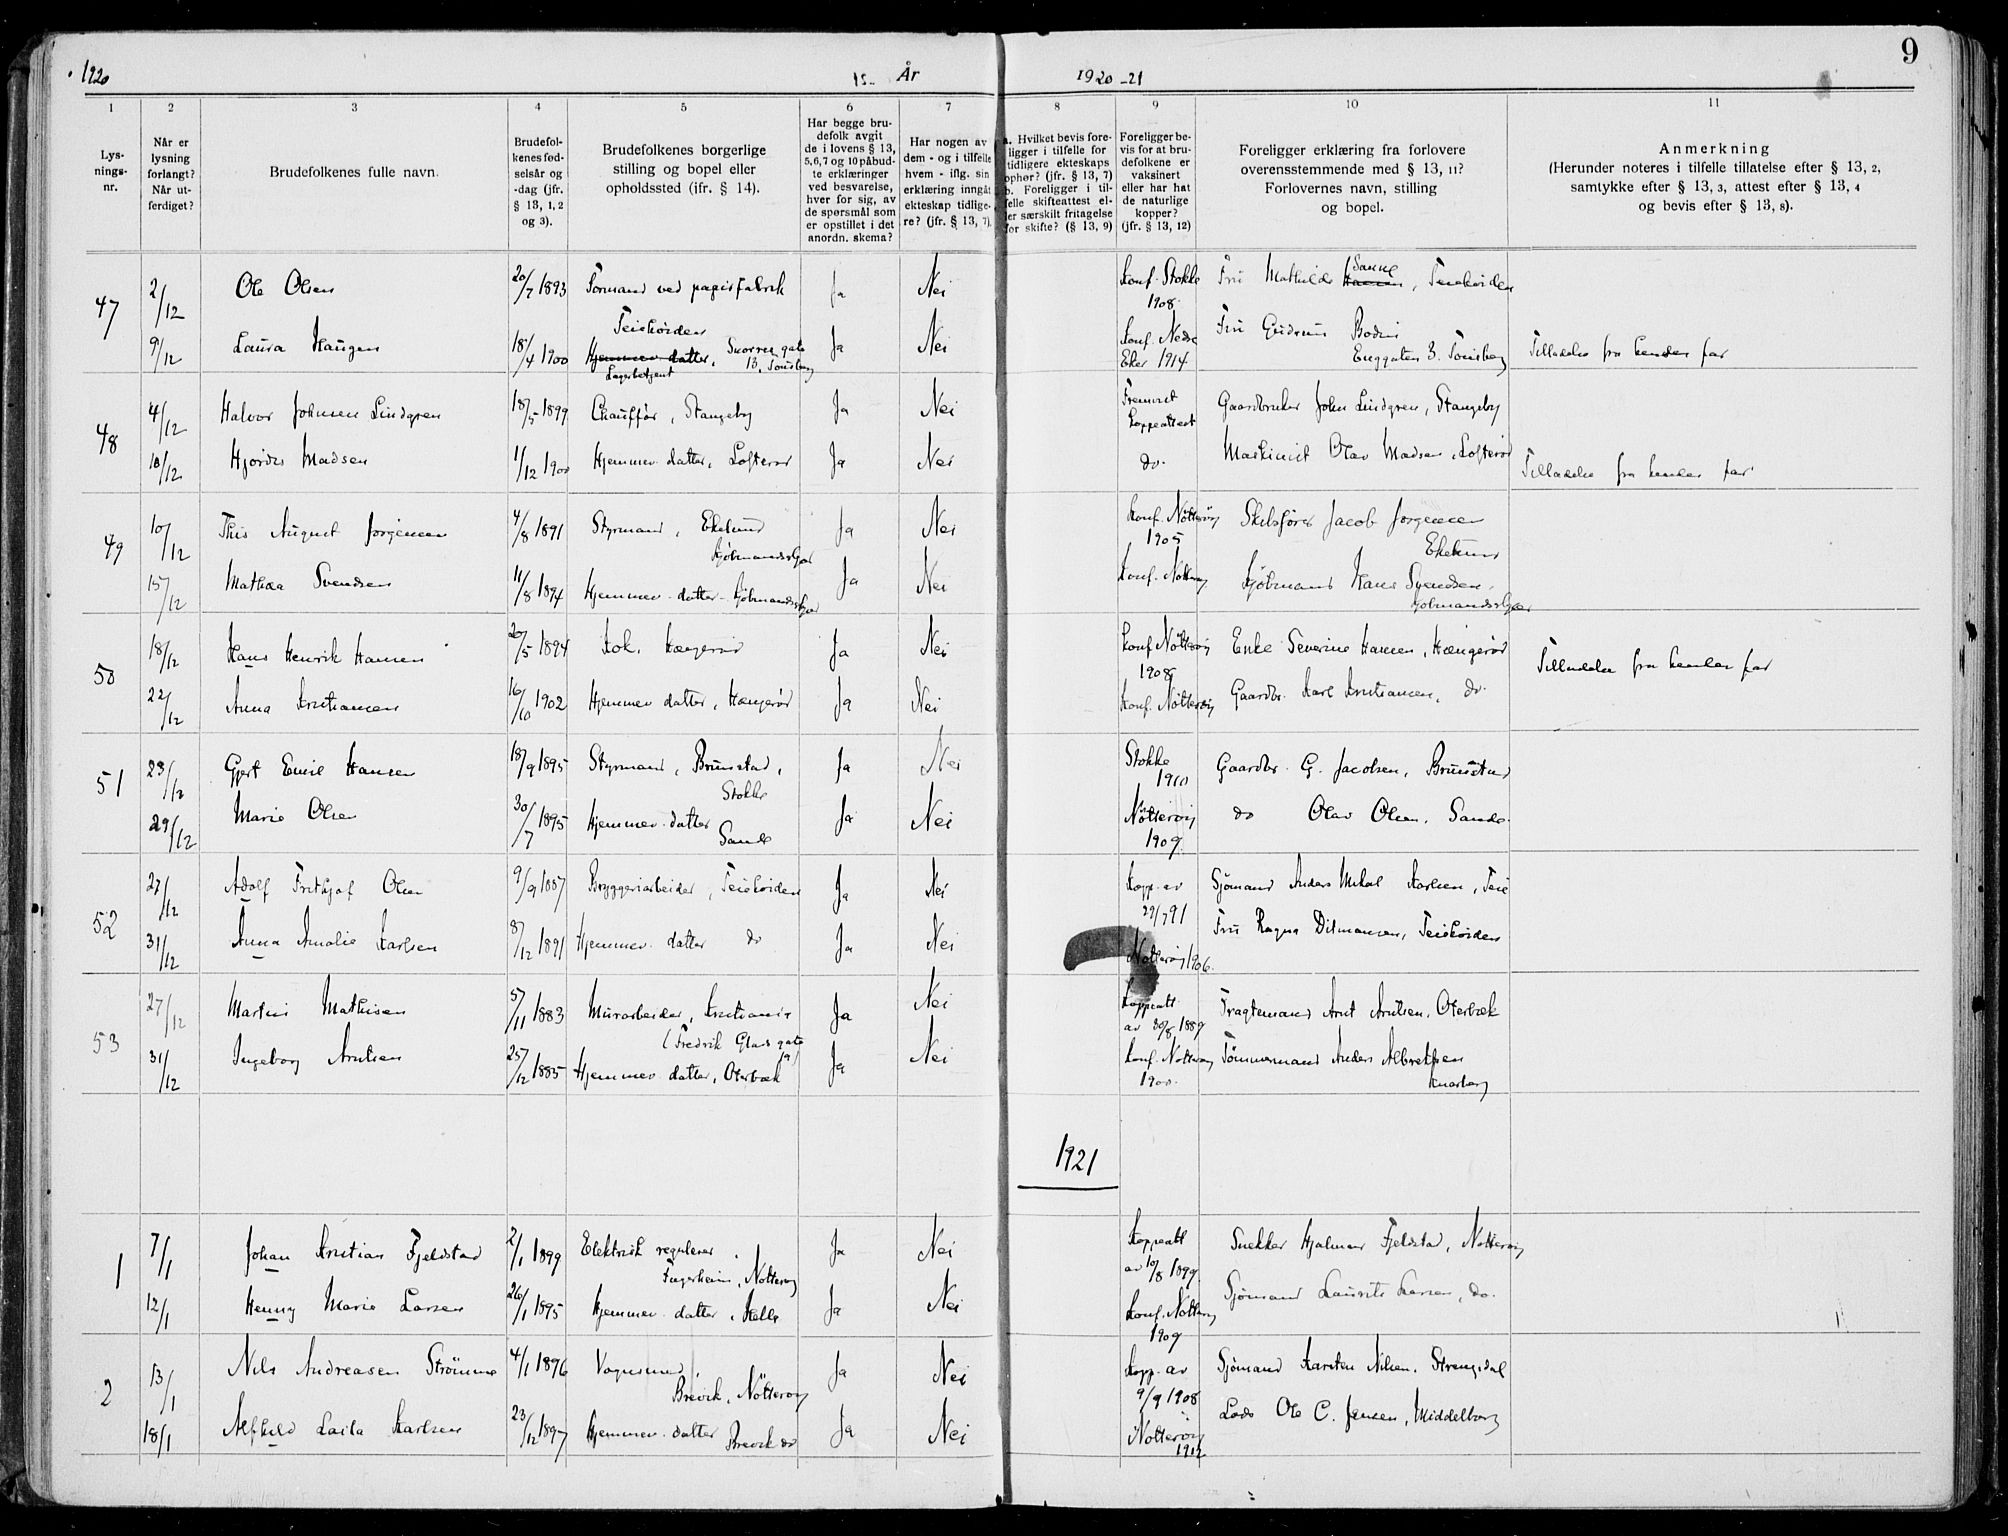 1920
År
1920-21
9
1
2
3
4
5
6
7
8
9
10
11
Lys-
nings-
nr.
Når er
lysning
forlangt?
Når ut-
ferdiget?
Brudefolkenes fulle navn.
Brudefol-
kenes fød-
selsår og
-dag (jfr.
§ 13, 1, 2
og 3).
Brudefolkenes borgerlige
stilling og bopel eller
opholdssted (jfr. § 14).
Har begge bru-
defolk avgit
de i lovens § 13,
5,6,7 og 10 påbud-
te erklæringer
ved besvarelse,
hver for sig, av
de spørsmål som
er opstillet i det
anordn. skema?
Har nogen av
dem - og i tilfelle
hvem - iflg. sin
erklæring inngåt
ekteskap tidlige-
re? (jfr. § 13, 7).
a. Hvilket bevis fore-
ligger i tilfelle for
tidligere ekteskaps
ophør? (jfr. § 13, 7)
b. Foreligger i til-
felle skifteattest el-
ler særskilt fritagelse
for skifte? (§ 13, 9)
Foreligger be-
vis for at bru-
defolkene er
vaksinert
eller har hat
de naturlige
kopper?
(jfr. § 13, 12)
Foreligger erklæring fra forlovere
overensstemmende med § 13, 11?
Forlovernes navn, stilling
og bopel.
Anmerkning
(Herunder noteres i tilfelle tillatelse efter § 13, 2,
samtykke efter § 13, 3, attest efter § 13, 4
og bevis efter § 13, 8).
47
2/12
Ole Olsen
20/7 1893
Formand ved papirfabrik
Teiehöiden
Ja
Nei
Konf. Stokke
1908.
Fru Mathilde Hansen, Teiehöiden
9/12
Laura Haugen
18/4 1900
Hjemmev. datter, Snorres gate
13, Tönsberg
Lagerbetjent
Ja
Nei
Konf. Nedre
Eker 1914
Fru Gudrun Bodin
Enggaten 3. Tönsberg
Tilladelse fra hendes far
48
4/12
Halvor Johnsen Lindgren
18/5 1899
Chauffør, Stangeby
Ja
Nei
Fremvist
koppeattest
Gaardbruker John Lindgren, Stangeby
10/12
Hjördis Madsen
1/12 1900
Hjemmev. datter, Lofteröd
Ja
Nei
do.
Maskinist Olav Madsen, Lofteröd
Tilladelse fra hendes far
49
10/12
This August Jørgensen
4/8 1891
Styrmand, Ekelund
Kjøbmandsskjær
Ja
Nei
Konf. Nötterøy
1905
Skibsfører Jacob Jørgensen
Ekelund
15/12
Mathea Svendsen
11/8 1894
Hjemmev. datter. Kjøbmandsskjær
Ja
Nei
Konf. Nötterøy
Kjøbmand Hans Svendsen.
Kjøbmandsskjær
50
18/12
Hans Henrik Hansen
26/5 1894
Kok. Hængerød
Ja
Nei
Konf. Nötterøy
1908
Enke Severine Hansen, Hængerød
22/12
Anna Kristiansen
16/10 1902
Hjemmev datter, Hængerød
Ja
Nei
Konf. Nötterøy
Gaardbr. Karl Kristiansen, do.
Tilladelse fra hendes far
51
23/12
Gjert Emil Hansen
18/9 1895
Styrmand, Brunstad,
Stokke
Ja
Nei
Stokke
1910
Gaardbr. G. Jacobsen, Brunstad
29/12
Marie Olsen
30/7 1895
Hjemmev. datter
Sande
Ja
Nei
Nötterøy
1909
do Olav Olsen, Sande
52
27/12
Adolf Frithjof Olsen
9/9 1887
Bryggeriarbeider, Teiehöiden
Ja
Nei
Kopp. av
29/7 91
Sjømand Anders Mikal Karlsen, Teie
31/12
Anna Amalie Karlsen
8/12 1891
Hjemmev. datter do
Ja
Nei
Nötterøy 1906.
Fru Ragna Ditmansen, Teiehöiden
53
27/12
Martin Mathisen
5/11 1883
Murarbeider, Kristiania
(Fredrik Glads gate
Ja
Nei
Koppeatt.
av 30/8 1889
Fragtemand Arnt Arntsen, Oterbæk
31/12
Ingeborg Arntsen
25/12 1885
Hjemmev. datter, Oterbæk
Ja
Nei
Konf. Nötterøy
1900.
Tömmermand Anders Albretsen
Knarberg
1921
1
7/1
Johan Kristian Fjeldstad
2/1 1899
Elektrisk regulerer.
Fagerheim, Nötterøy
Ja
Nei
Koppeatt
av 10/8 1899
Snekker Hjalmar Fjeldstad, Nötterøy
12/1
Henny Marie Larsen
26/1 1895
Hjemmev. datter, Hella
Ja
Nei
Konf. Nötterøy
1909
Sjømand Laurits Larsen, do.
2
13/1
Nils Andreasen Strömme
4/1 1896
Vognmand,
Brevik, Nötterøy
Ja
Nei
Kopp. av
9/9 1908
Sjømand Karsten Nilsen. Strengsdal
18/1
Alfhild Laila Karlsen
23/12 1897
Hjemmev. datter
Brevik do
Ja
Nei
Nötterøy
1912
Lods Ole C. Jensen, Middelborg